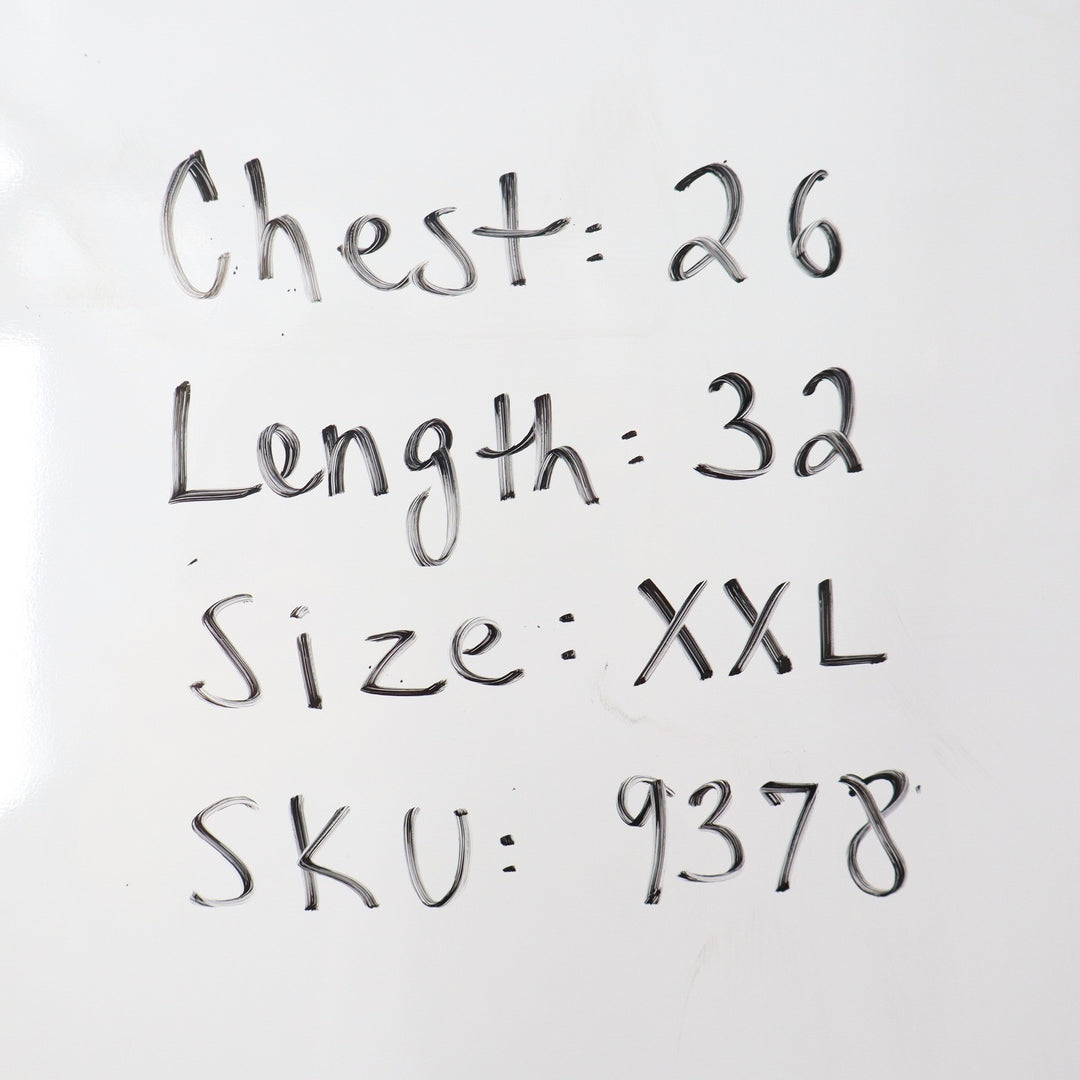 Chest: 26
Length: 32
Size: XXL
SKU: 9378